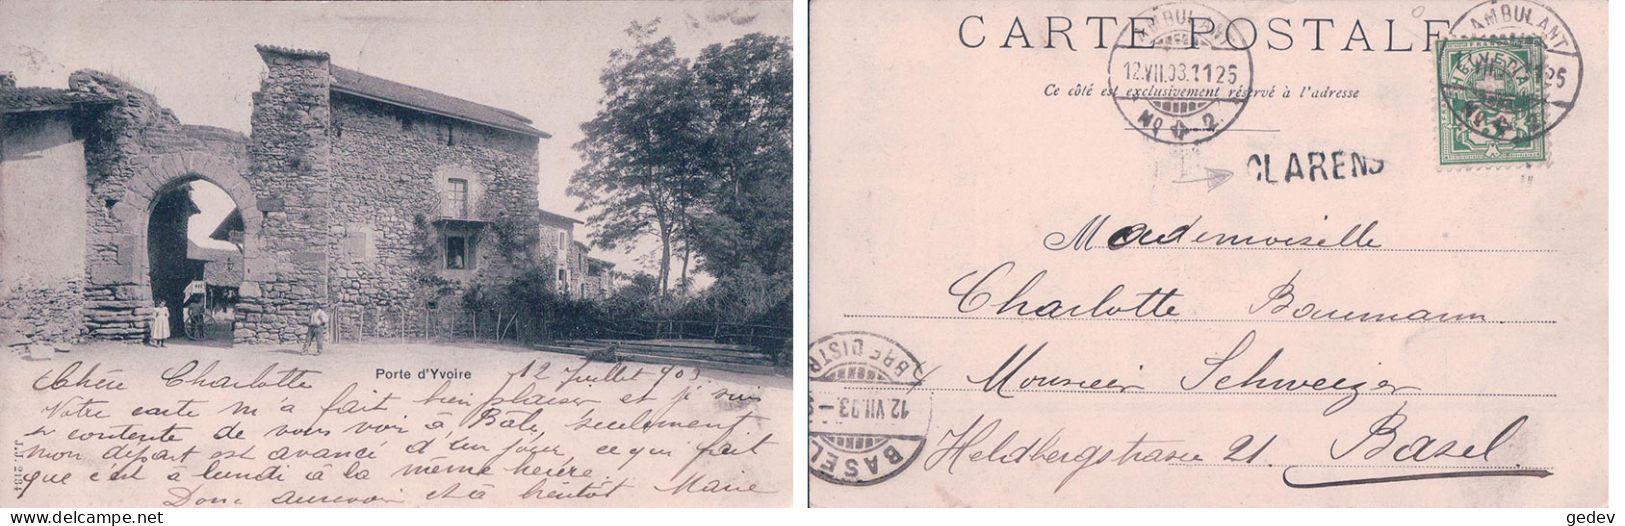 Porte d'Yvoire
12 Juillet 903
Chère Charlotte
Votre carte m'a fait bien plaisir et je suis
si contente de vous voir à Bâle, seulement
mon départ est avancé d'un jour, ce qui fait
que c'est à lundi à la même heure.
Donc aurevoir et à bientôt Marie
J.J. 2134
CARTE POSTALE
Ce côté est exclusivement réservé à l'adresse
AMBULANT
12.VII.03.1125
No 2
AMBULANT
25
No 2
HELVETIA
CLARENS
Mademoiselle
Charlotte Baumann
Monsieur Schweizer
Heldbergstrasse 21. Basel
BASEL
12.VII.03
BRF. DISTR.
gedev